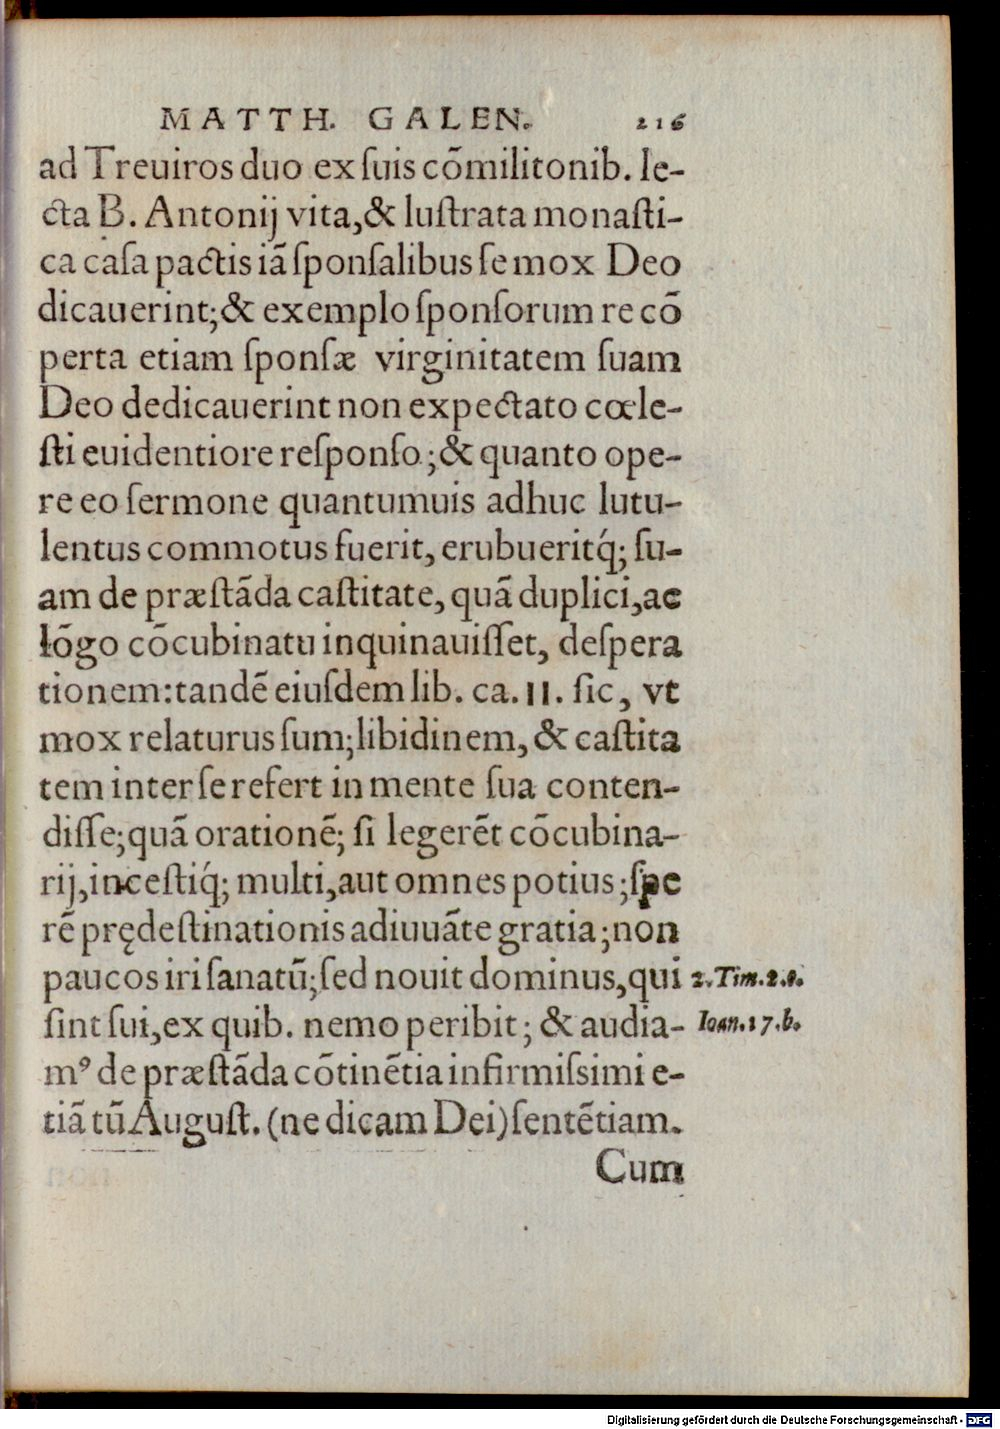 MATTH. GALEN. 216
ad Treuiros duo ex ſuis cõmilitonib. le-
cta B. Antonij vita,& luſtrata monaſti-
ca caſa pactis iã ſponſalibus ſe mox Deo
dicauerint;& exemplo ſponſorum re cõ
perta etiam ſponſæ virginitatem ſuam
Deo dedicauerint non expectato cœle-
ſti euidentiore reſponſo;& quanto ope-
re eo ſermone quantumuis adhuc lutu-
lentus commotus fuerit, erubueritq́; ſu-
am de præſtãda caſtitate, quã duplici,ac
lõgo cõcubinatu inquinauiſſet, deſpera
tionem:tandẽ eiuſdem lib. ca.11. ſic, vt
mox relaturus ſum;libidinem,& caſtita
tem inter ſe refert in mente ſua conten-
diſſe;quã orationẽ; ſi legerẽt cõcubina-
rij,inceſtiq́; multi,aut omnes potius;ſpe
rẽ prędeſtinationis adiuuãte gratia;non
paucos iri ſanatũ;ſed nouit dominus,qui 2.Tim.2.c.
ſint ſui,ex quib. nemo peribit; & audia- Ioan.17.b.
mꝰ de præſtãda cõtinẽtia infirmiſsimi e-
tiã tũ Auguſt. (ne dicam Dei)ſentẽtiam.
Cum
Digitalisierung gefördert durch die Deutsche Forschungsgemeinschaft - DFG